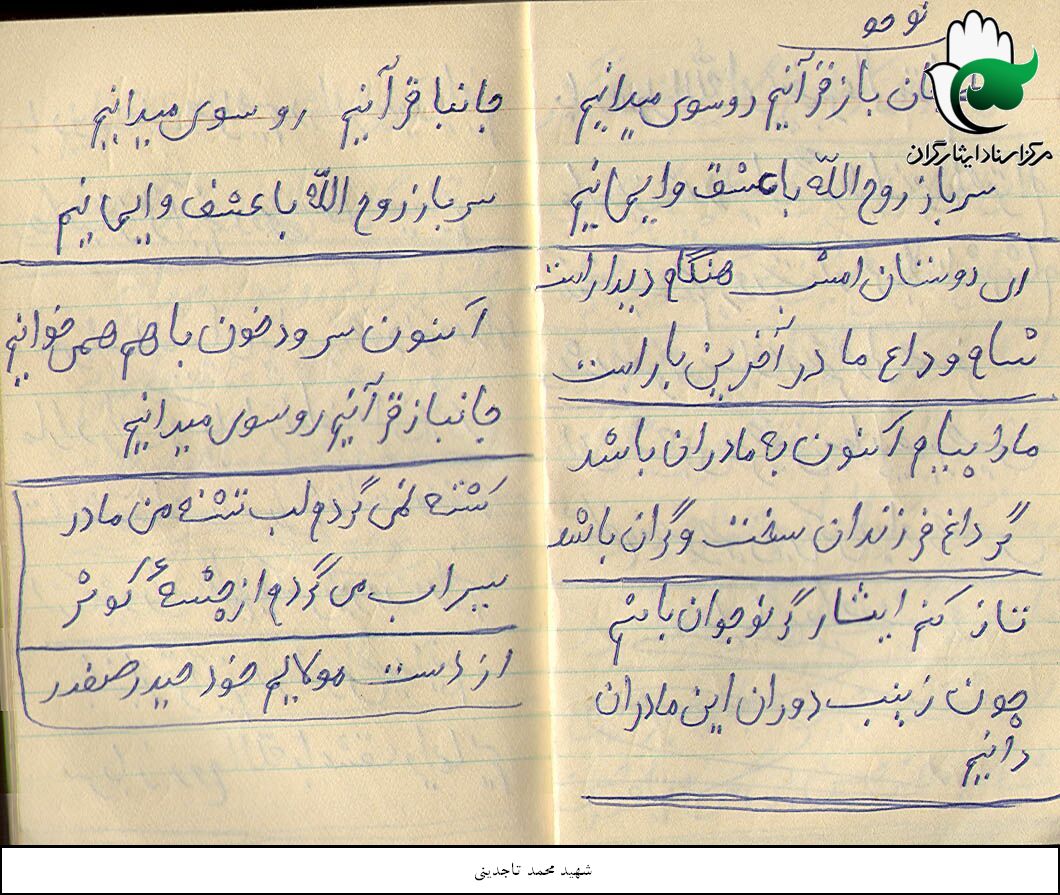 نوحه
جان باز قرآنیم رو سوی میدانیم
مرکز اسناد ایثارگران
سرباز روح الله با عشق و ایمانیم
ای دوستان امشب هنگام دیدار است
شام وداع ما در آخرین بار است
ما را پیام اکنون به مادران باشد
گر داغ فرزندان سخت و گران باشد
کنم ایثار گر نوجوان باشم
چون زینب دوران این مادران
دانیم
جانبا قرآنیم رو سوی میدانیم
سرباز روح الله با عشق و ایمانیم
اکنون سرود خون با هم همی خوانیم
جانباز قرآنیم رو سوی میدانیم
کشته نمی گردم لب تشنه من مادر
سیراب می گردم از چشمهٔ کوثر
از دست مولایم خود حیدر صفدر
شهید محمد تاجدینی